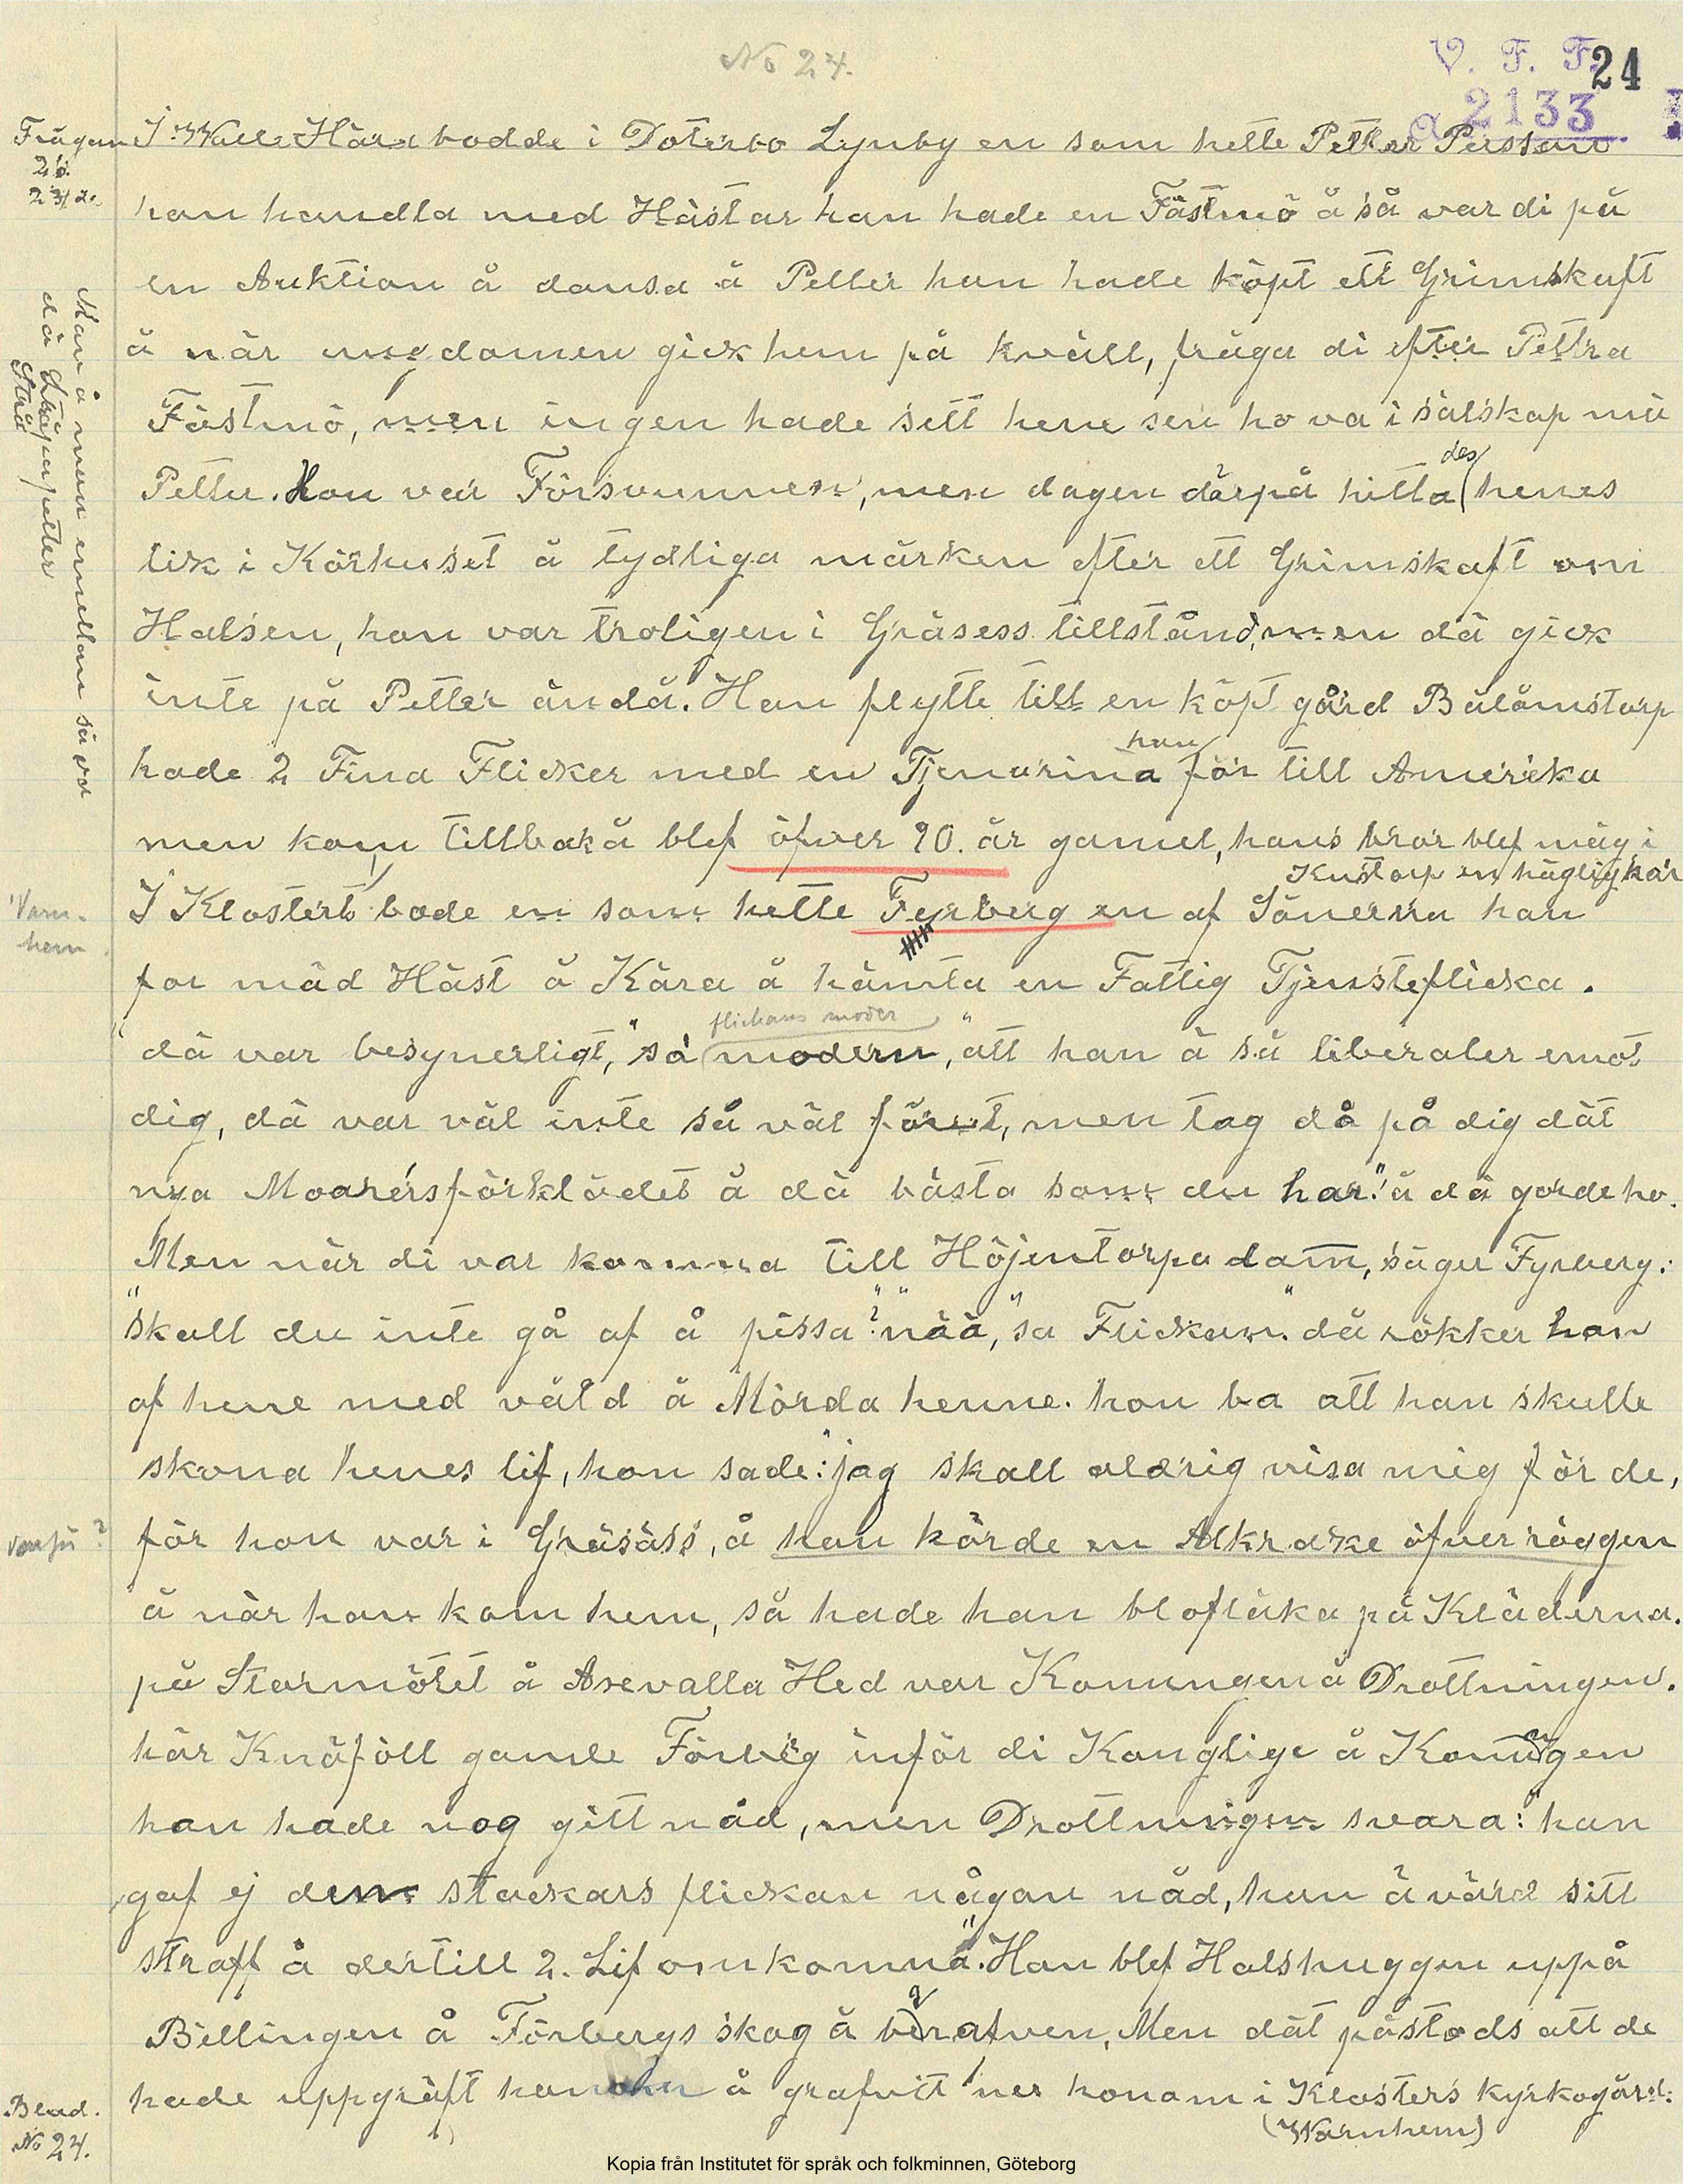 No 24.
V. F. F. 24
a 2133
Frågan
23/2.
I Walle Härad bodde i Lynby en som hette Petter Persson
han handla med Hästar han hade en Fästmö å så var di på
en Auktion å dansa å Petter han hade köpt ett Grimskaft
å när ungdomen gick hem på kväll, fråga di efter Pettra
Fästmö, men ingen hade sett hene sen ho va i sälskap mä
Petter. Hon var Försvunnen, men dagen därpå hitta des henes
lik i Körhuset å tydliga märken efter ett Grimskaft om
Halsen, hon var troligen i Gräsess tillstånd, men dä gick
inte på Petter ändå. Han flytte till en köpt gård Bälåmstorp
hade 2 Fina Flicker med en Tjenarina han för till Amerika
men kom tillbaka å blef öfver 90. år gamel, hans bror blef måg i
Knstorp en häglig kar
Man å man emellan så va
dä Ströpapetter
Varn-
hem
I Klosters bode en som hette Fyrberg en af Sönerna han
for mäd Häst å Kära å hämta en Fattig Tjensteflicka.
"dä var besynerligt," så modern, "att han ä så liberaler emot
flickans moder
dig, dä var väl inte så väl förut, men tag då på dig dät
nya Moarérsförklädet å dä bästa som du har." å dä gorde ho.
Men när di var komma till Höjentorpa dam, säger Fyrberg:
"skall du inte gå af å pissa?" "nää," sa Flickan. då rökker han
af hene med våld å Mörda henne. hon ba att han skulle
skona henes lif, hon sade: "jag skall aldrig visa mig för de,
för hon var i Gräsäss, å han körde en Alkrake öfver röggen
å när han kom hem, så hade han blofläka på Kläderna.
på Stormötet å Axevalla Hed var Konungen å Drottningen.
här Knäföll gamle Förberg inför di Konglige å Konungen
han hade nog gitt nåd, men Drottningen svara: "han
gaf ej den stackars flickan någon nåd, han ä värd sitt
straff å dertill 2. Lif omkomna". Han blef Halshuggen uppå
Billingen å Förbergs skog å Men dät påstods att de
hade uppgräft honom å grafvit ner honam i Klosters kyrkogård.
(Warnhem)
Blad.
No 24.
Kopia från Institutet för språk och folkminnen, Göteborg